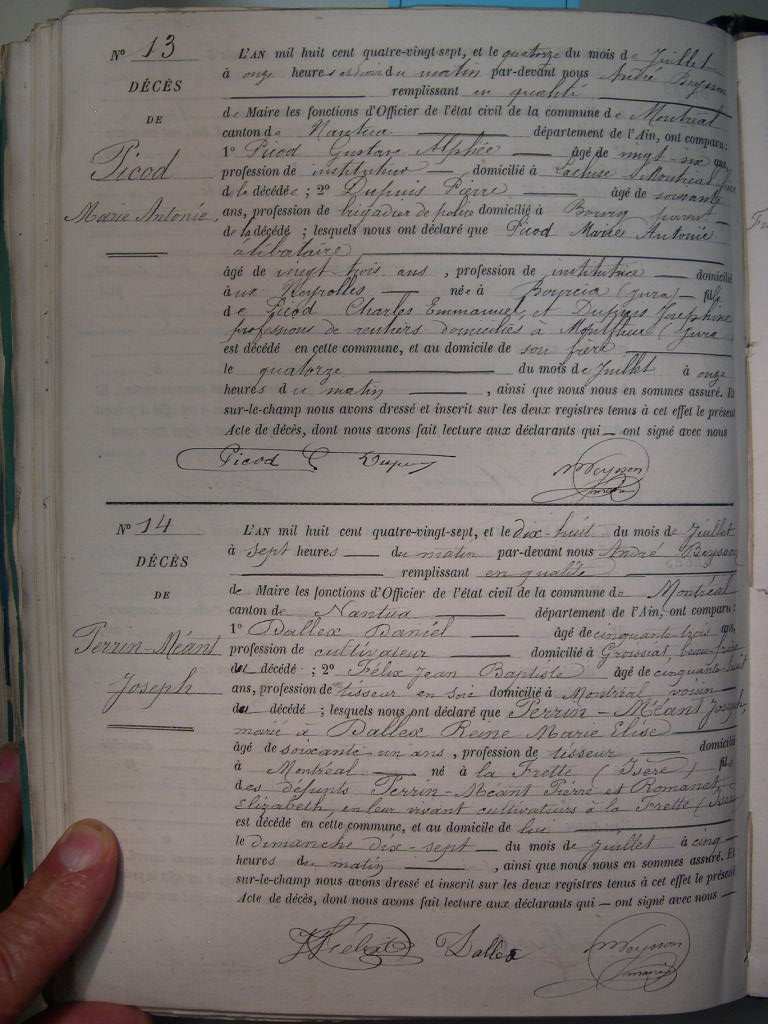 N° 13
DÉCÈS
DE
Picod
Marie Antonie
L'AN mil huit cent quatre-vingt-sept, et le quatorze du mois de Juillet
à onze heures du matin par-devant nous André
remplissant en qualité
de Maire les fonctions d'Officier de l'état civil de la commune de Montréal
canton de Nantua département de l'Ain, ont comparu:
1° Picod Gustave Alphée âgé de vingt six ans,
profession de instituteur domicilié à Lacluse Montréal frère
de la décédée ; 2° Dupuis Pierre âgé de soixante
ans, profession de brigadier de police domicilié à Bourg parent
de la décédé ; lesquels nous ont déclaré que Picod Marie Antonie
célibataire
âgé de vingt trois ans, profession de institutrice domicilié
à Neyrolles née à (Jura) fille
de Picod Charles Emmanuel et Dupuis Joséphine
professions de rentiers domiciliés à (Jura)
est décédé en cette commune, et au domicile de son frère
le quatorze du mois de Juillet à onze
heures du matin, ainsi que nous nous en sommes assuré. Et
sur-le-champ nous avons dressé et inscrit sur les deux registres tenus à cet effet le présent
Acte de décès, dont nous avons fait lecture aux déclarants qui — ont signé avec nous
Picod G Dupuis
N° 14
DÉCÈS
DE
Perrin-Méant
Joseph
L'AN mil huit cent quatre-vingt-sept, et le dix-huit du mois de Juillet
à sept heures du matin par-devant nous André
remplissant en qualité
de Maire les fonctions d'Officier de l'état civil de la commune de Montréal
canton de Nantua département de l'Ain, ont comparu:
1° Dallex Daniel âgé de cinquante trois ans,
profession de cultivateur domicilié à Groissiat beau frère
du décédé ; 2° Félix Jean Baptiste âgé de cinquante huit
ans, profession de tisseur en soie domicilié à Montréal voisin
du décédé ; lesquels nous ont déclaré que Perrin-Méant Joseph
marié à Dallex Reine Marie Elise
âgé de soixante un ans, profession de tisseur domicilié
à Montréal né à la Frette (Isère) fils
des défunts Perrin-Méant Pierre et Romanet
Elizabeth, en leur vivant cultivateurs à la Frette (Isère
est décédé en cette commune, et au domicile de lui
le dimanche dix-sept du mois de Juillet à cinq
heures du matin, ainsi que nous nous en sommes assuré. Et
sur-le-champ nous avons dressé et inscrit sur les deux registres tenus à cet effet le présent
Acte de décès, dont nous avons fait lecture aux déclarants qui — ont signé avec nous
JFélix Dallex